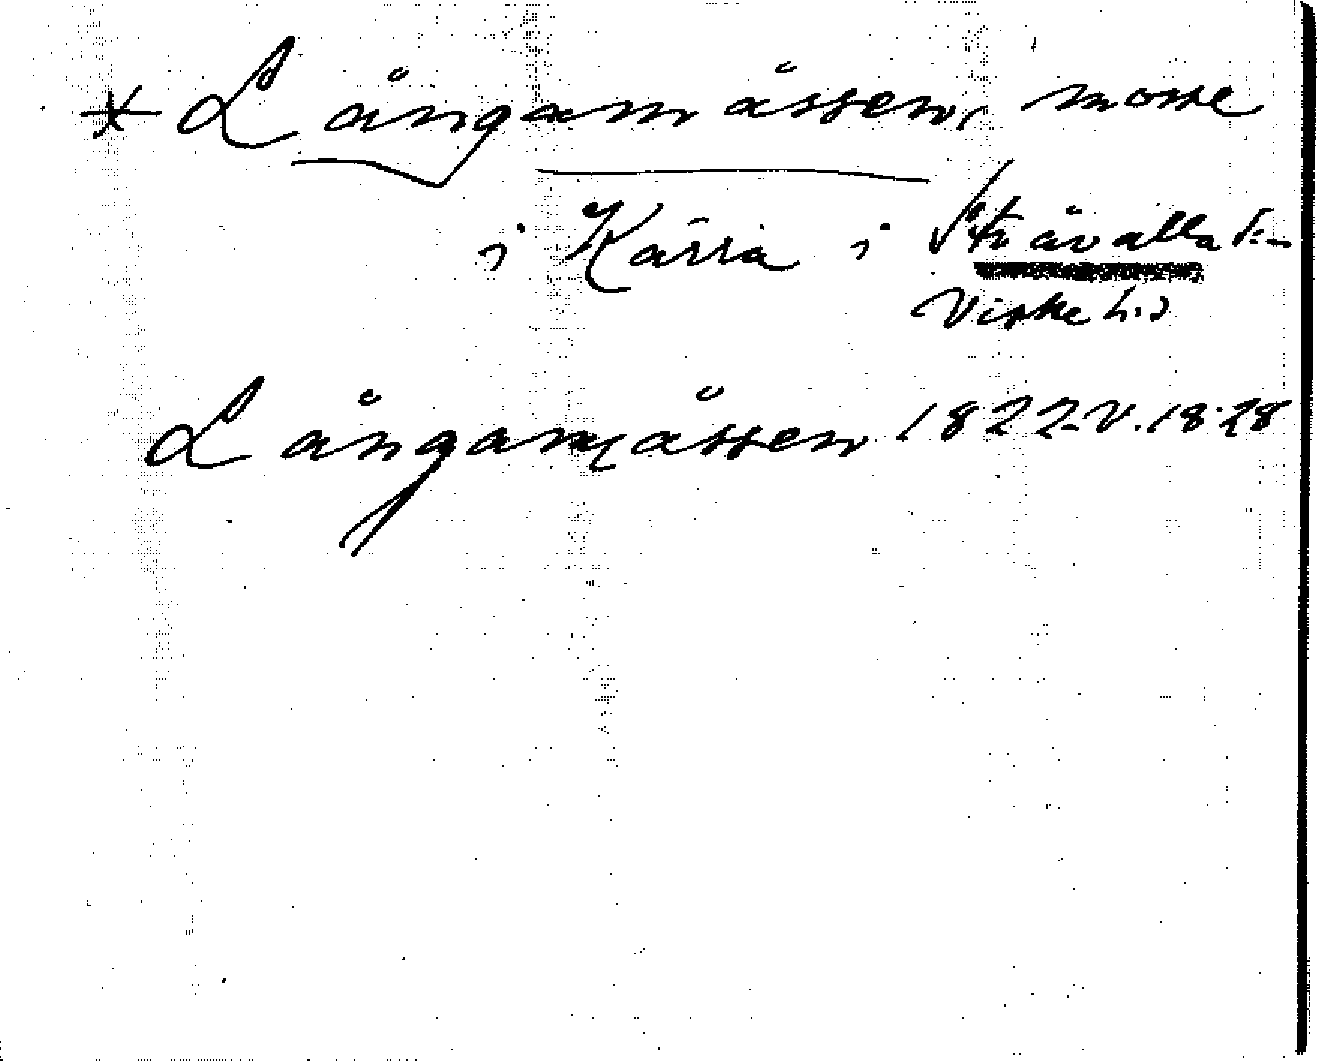 * Långamåssen, mosse
i Kärra i Stråvalla sn
Viske hd
Långamåssen 1822 v. 18·28